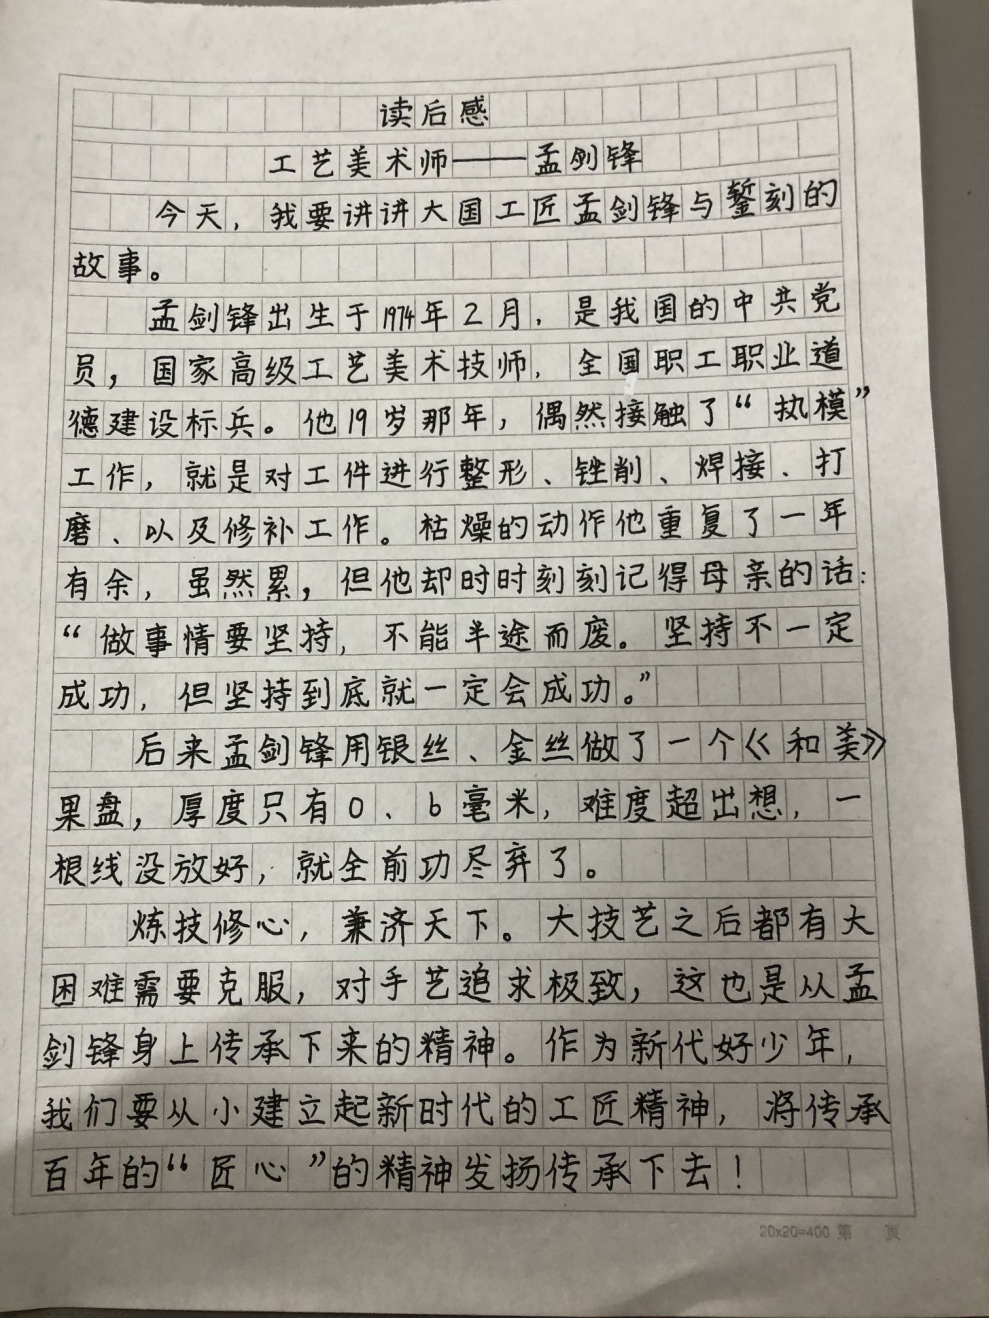 读后感
工艺美术师——孟剑锋
今天，我要讲讲大国工匠孟剑锋与錾刻的
故事。
孟剑锋出生于1974年2月，是我国的中共党
员，国家高级工艺美术技师，全国职工职业道
德建设标兵。他19岁那年，偶然接触了“执模”
工作，就是对工件进行整形、锉削、焊接、打
磨、以及修补工作。枯燥的动作他重复了一年
有余，虽然累，但他却时时刻刻记得母亲的话：
“做事情要坚持，不能半途而废。坚持不一定
成功，但坚持到底就一定会成功。”
后来孟剑锋用银丝、金丝做了一个《和美》
果盘，厚度只有0、6毫米，难度超出想，一
根线没放好，就全前功尽弃了。
炼技修心，兼济天下。大技艺之后都有大
困难需要克服，对手艺追求极致，这也是从孟
剑锋身上传承下来的精神。作为新代好少年，
我们要从小建立起新时代的工匠精神，将传承
百年的“匠心”的精神发扬传承下去！
20x20=400 第 页